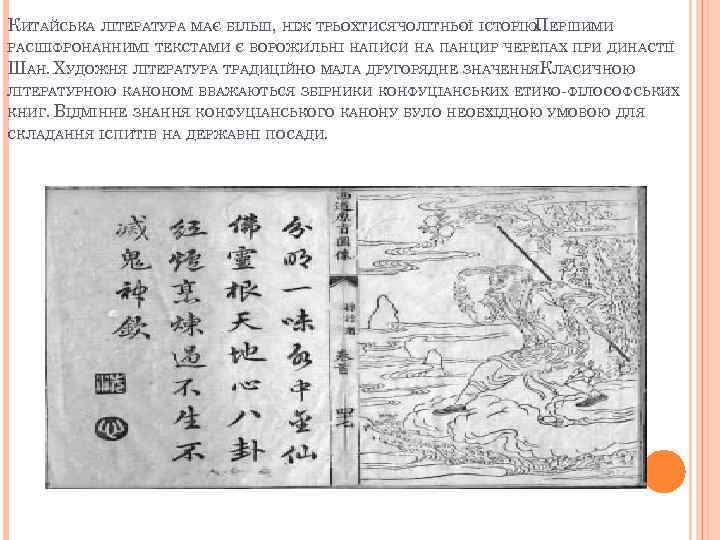 КИТАЙСЬКА ЛІТЕРАТУРА МАЄ БІЛЬШ, НІЖ ТРЬОХТИСЯЧОЛІТНЬОЇ ІСТОРІЮ.ПЕРШИМИ
РАСШІФРОНАННИМІ ТЕКСТАМИ Є ВОРОЖИЛЬНІ НАПИСИ НА ПАНЦИР ЧЕРЕПАХ ПРИ ДИНАСТІЇ
ШАН. ХУДОЖНЯ ЛІТЕРАТУРА ТРАДИЦІЙНО МАЛА ДРУГОРЯДНЕ ЗНАЧЕННЯ.КЛАСИЧНОЮ
ЛІТЕРАТУРНОЮ КАНОНОМ ВВАЖАЮТЬСЯ ЗБІРНИКИ КОНФУЦІАНСЬКИХ ЕТИКО-ФІЛОСОФСЬКИХ
КНИГ. ВІДМІННЕ ЗНАННЯ КОНФУЦІАНСЬКОГО КАНОНУ БУЛО НЕОБХІДНОЮ УМОВОЮ ДЛЯ
СКЛАДАННЯ ІСПИТІВ НА ДЕРЖАВНІ ПОСАДИ.
西遊原旨圖像
卷首
分明一味水中金仙
佛靈根天地心八卦
紅爐烹煉過不生不
滅鬼神欽